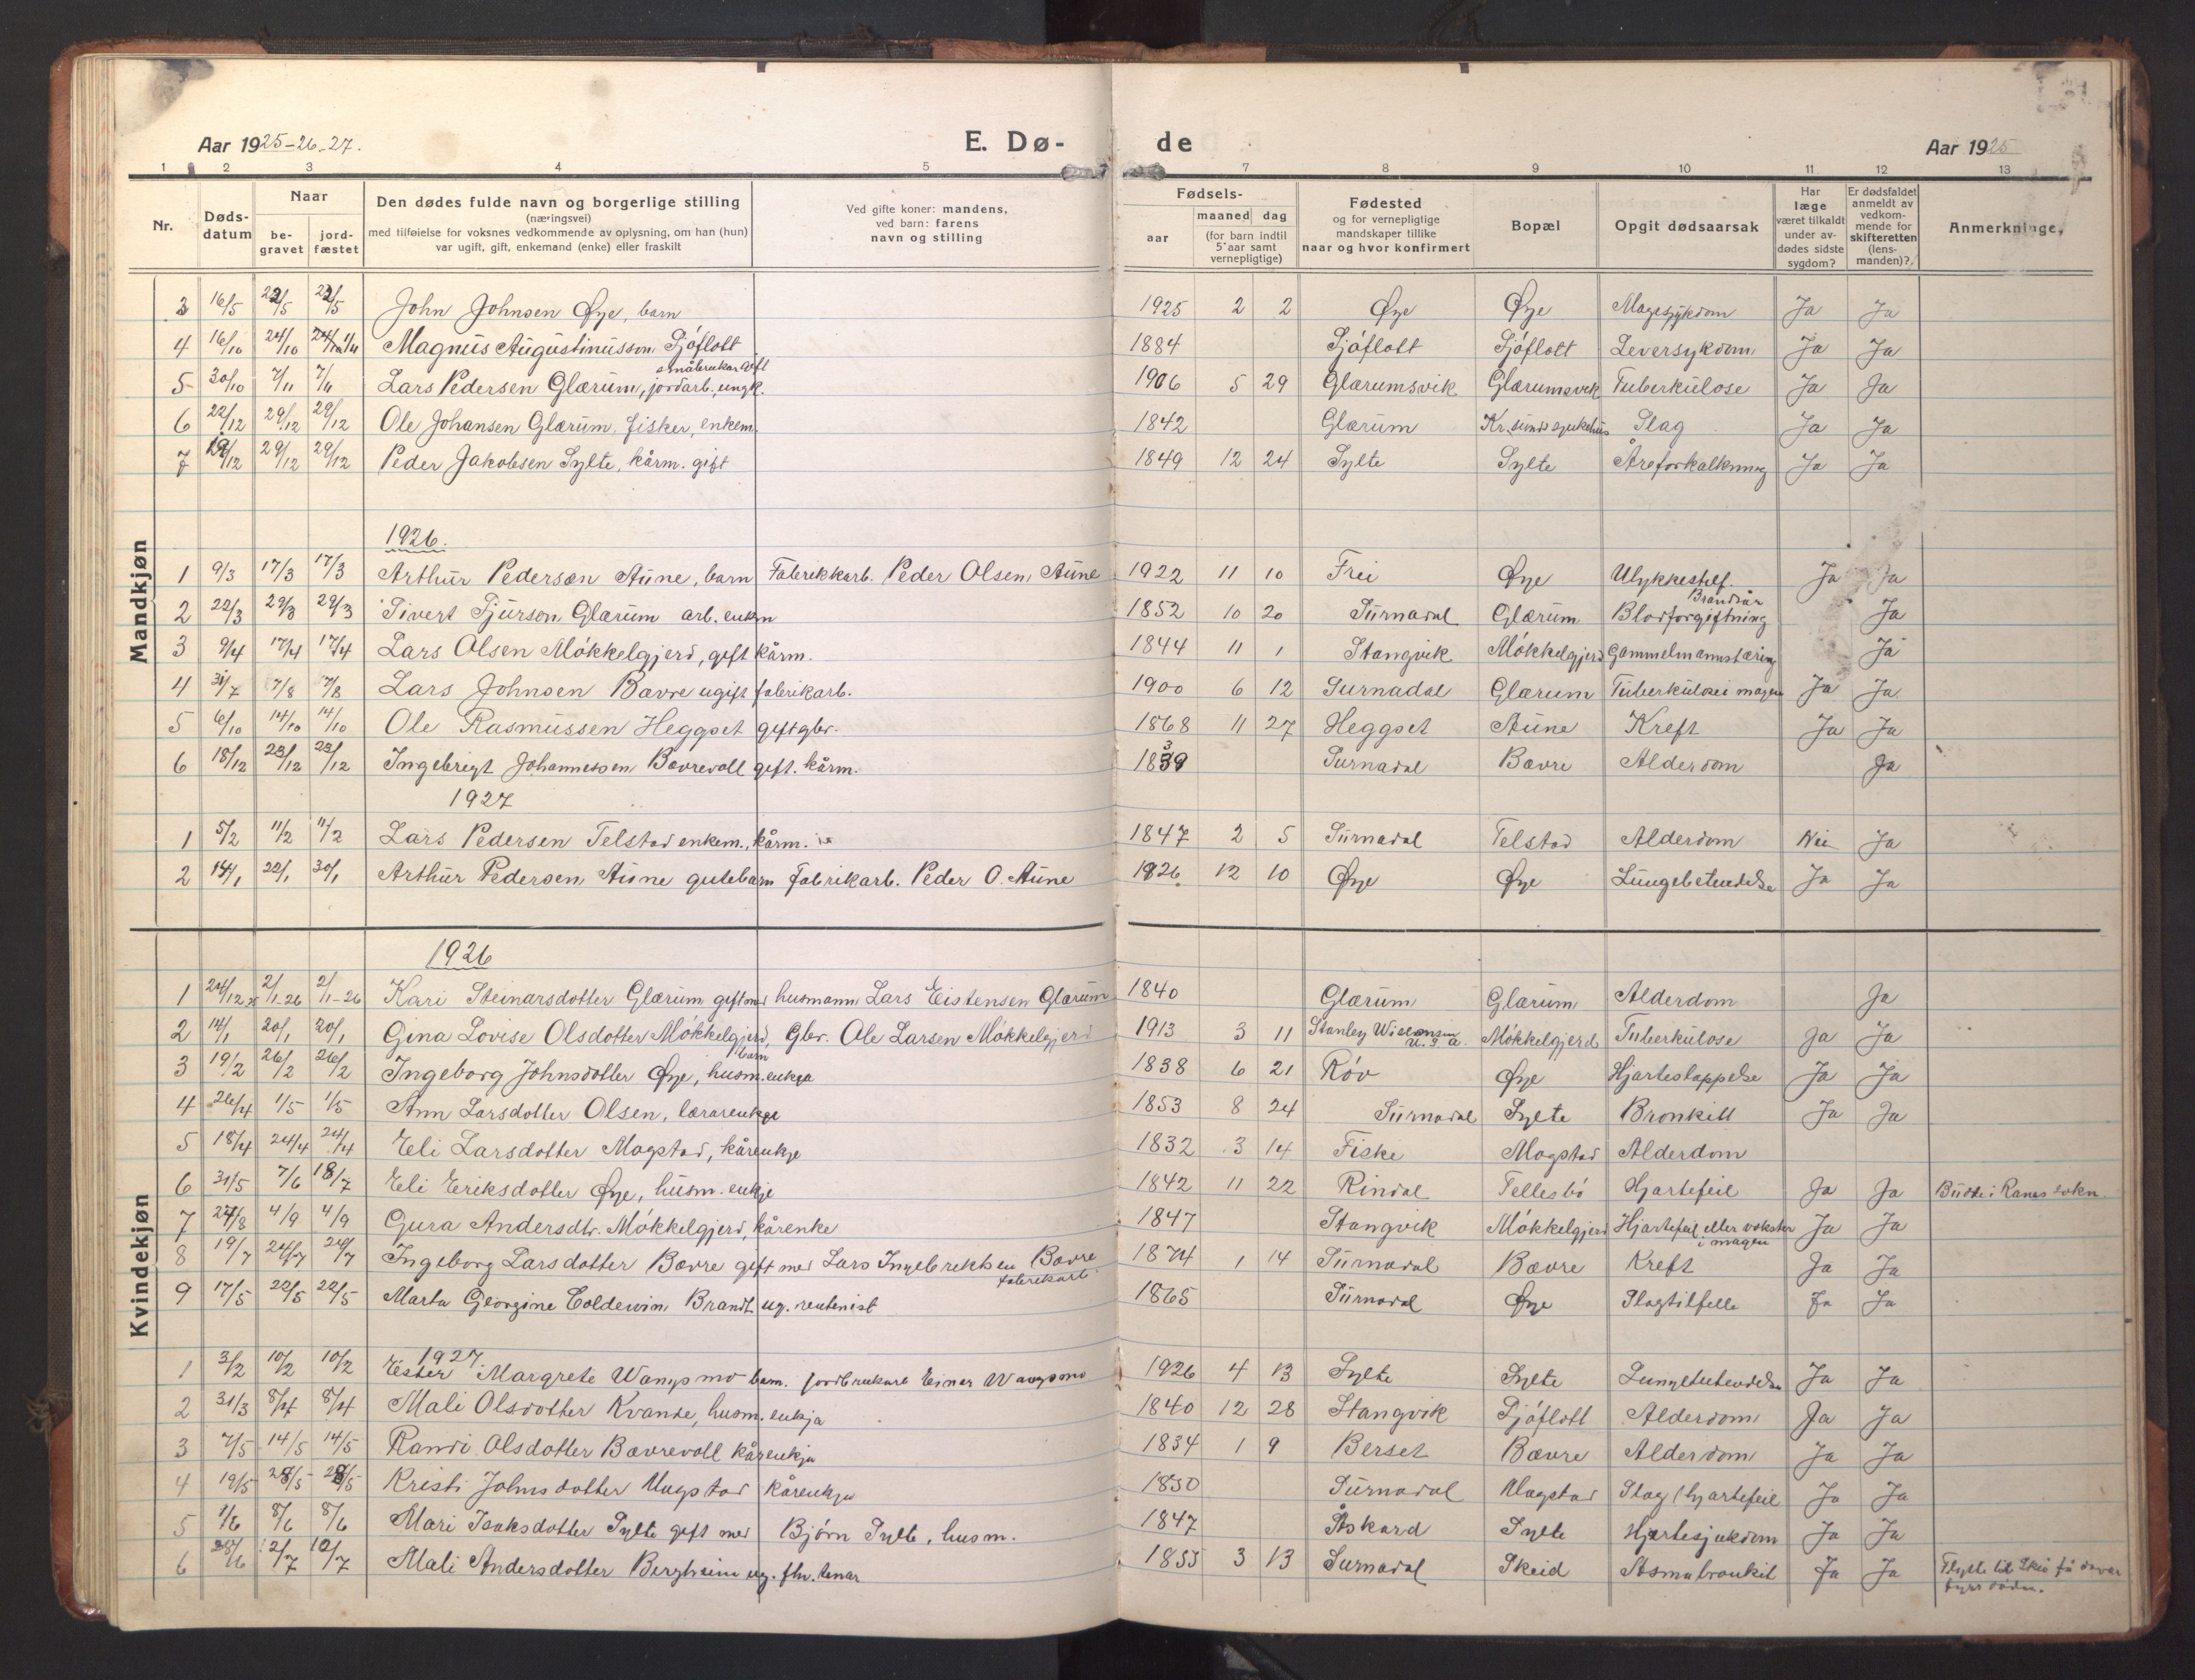 Aar 1925-26-27. E. Dø- de Aar 1925
1 2 3 4 5 7 8 9 10 11 12 13
Nr. Døds-datum Naar be-gravet jord-fæstet Den dødes fulde navn og borgerlige stilling (næringsvei) med tilføielse for voksnes vedkommende av oplysning, om han (hun) var ugift, gift, enkemand (enke) eller fraskilt Ved gifte koner: mandens, ved barn: farens navn og stilling Fødsels- aar maaned dag (for barn indtil 5 aar samt vernepligtige) Fødested og for vernepligtige mandskaper tillike naar og hvor konfirmert Bopæl Opgit dødsaarsak Har læge været tilkaldt under av-dødes sidste sygdom? Er dødsfaldet anmeldt av vedkom-mende for skifteretten (lens-manden)? Anmerkninge,
Mandkjøn
3 16/5 22/5 22/5 John Johnsen Øye, barn 1925 2 2 Øye Øye Magesykdom Ja Ja
4 16/10 24/10 Magnus Augustinusson Sjøflott småbrukar gift 1884 Sjøflott Sjøflott Leversykdom Ja Ja
5 30/10 7/11 7/11 Lars Pedersen Glærum, jordarb., ungk. 1906 5 29 Glærumsvik Glærumsvik Tuberkulose Ja Ja
6 22/12 29/12 29/12 Ole Johansen Glærum, fisker, enkem. 1842 Glærum Kr.sunds sjukehus Slag Ja Ja
7 19/12 29/12 29/12 Peder Jakobsen Sylte, kårm. gift 1849 12 24 Sylte Sylte Åreforkalkning Ja Ja
1926.
1 9/3 17/3 17/3 Arthur Pedersen Aune, barn Fabrikkarb. Peder Olsen Aune 1922 11 10 Frei Øye Ulykkestilf. Brandsår Ja Ja
2 22/3 29/3 29/3 Sivert Sjurson Glærum arb. enkm 1852 10 20 Surnadal Glærum Blodforgiftning Ja
3 9/4 17/4 17/4 Lars Olsen Møkkelgjerd, gift kårm. 1844 11 1 Stangvik Møkkelgjerd Gammelmannstæring Ja
4 31/7 7/8 7/8 Lars Johnsen Bævre ugift fabrikarb. 1900 6 12 Surnadal Glærum Tuberkulose i magen Ja Ja
5 6/10 14/10 14/10 Ole Rasmussen Heggset gift gbr. 1868 11 27 Heggset Aune Kreft Ja Ja
6 18/12 23/12 23/12 Ingebrigt Johannessen Bævrevoll gift. kårm. 1839 Surnadal Bævre Alderdom Ja
1927
1 5/2 11/2 11/2 Lars Pedersen Telstad enkem., kårm. 1847 2 5 Surnadal Telstad Alderdom Nei Ja
2 14/1 22/1 30/1 Arthur Pedersen Aune gutebarn Fabrikarb. Peder O. Aune 1926 12 10 Øye Øye Lungebetendelse Ja Ja
Kvindekjøn
1926
1 24/12 25 2/1-26 2/1-26 Kari Steinarsdotter Glærum gift med husmann Lars Eistensen Glærum 1840 Glærum Glærum Alderdom Ja
2 14/1 20/1 20/1 Gina Lovise Olsdotter Møkkelgjerd, barn Gbr. Ole Larsen Møkkelgjerd 1913 3 11 Stanley Wisconsin U.S.A. Møkkelgjerd Tuberkulose Ja Ja
3 19/2 26/2 26/2 Ingeborg Johnsdotter Øye, husm.enkja 1838 6 21 Røv Øye Hjarteslappelse Ja Ja
4 26/4 1/5 1/5 Ann Larsdotter Olsen, lærarenkje 1853 8 24 Surnadal Sylte Bronkitt Ja Ja
5 18/4 24/4 24/4 Eli Larsdotter Mogstad, kårenkje 1832 3 14 Fiske Mogstad Alderdom
6 31/5 7/6 18/7 Eli Eriksdotter Øye, husm. enkje 1842 11 22 Rindal Tellesbø Hjartefeil Ja Ja Budde i Ranes sokn
7 27/8 4/9 4/9 Gura Andersdtr. Møkkelgjerd, kårenke 1847 Stangvik Møkkelgjerd Hjartefeil eller vokster i magen Ja Ja
8 19/7 24/7 24/7 Ingeborg Larsdotter Bævre gift med Lars Ingebrektsen Bævre fabrikarb. 1874 1 14 Surnadal Bævre Kreft Ja Ja
9 17/5 22/5 22/5 Marta Georgine Coldevin Brandt ug. rentenist 1865 Surnadal Øye Slagtilfelle Ja Ja
1927.
1 3/2 10/2 10/2 Ester Margrete Wangsmo barn. jordbrukar Einar Wangsmo 1926 4 13 Sylte Sylte Lungebetendelse Ja Ja
2 31/3 8/4 8/4 Mali Olsdotter Kvande, husm. enkja 1840 12 28 Stangvik Sjøflott Alderdom Ja Ja
3 7/5 14/5 14/5 Randi Olsdotter Bævrevoll kårenkja 1834 1 9 Berset Bævre Alderdom Ja Ja
4 19/5 28/5 28/5 Kristi Johnsdotter Mogstad kårenkja 1830 Surnadal Mogstad Slag (hjartefeil Ja Ja
5 1/6 8/6 8/6 Mari Isaksdotter Sylte gift med Bjørn Sylte, husm. 1847 Åskard Sylte Hjartesjukdom Ja Ja
6 28/6 12/7 12/7 Mali Andersdotter Bergheim ug. fhv. tenar 1855 3 13 Surnadal Skeid Astmabronkit Ja Ja Flytte til Skei få dagar fyrr døden.